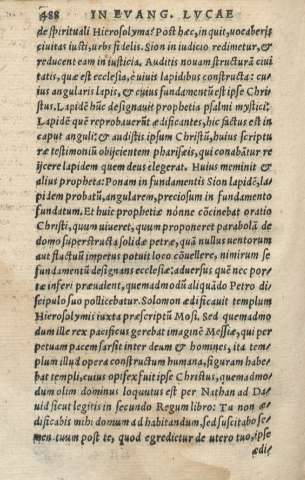 488 IN EVANG. LVCAE
de spirituali Hierosolyma? Post hæc, inquit, uocaberis
ciuitas iusti, urbs fidelis. Sion in iudicio redimetur, &
reducent eam in iusticia. Auditis nouam structurā ciui
tatis, quæ est ecclesia, è uiuis lapidibus constructa: cu
ius angularis lapis, & cuius fundamentū est ipse Chri
stus. Lapidē hūc designauit prophetia psalmi mystici:
Lapidē quē reprobauerūt ædificantes, hic factus est in
caput anguli: & audistis ipsum Christū, huius scriptu
ræ testimoniū obijcientem pharisæis, qui conabātur re
ijcere lapidem quem deus elegerat. Huius meminit &
alius propheta: Ponam in fundamentis Sion lapidē, la
pidem probatū, angularem, preciosum in fundamento
fundatum. Et huic prophetiæ nónne cōcinebat oratio
Christi, quum uiueret, quum proponeret parabolā de
domo superstructa solidæ petræ, quā nullus uentorum
aut fluctuū impetus potuit loco cōuellere, nimirum se
fundamentū designans ecclesiæ: aduersus quē nec por
tæ inferi præualent, quemadmodū aliquādo Petro di
scipulo suo pollicebatur. Solomon ædificauit templum
Hierosolymis iuxta præscriptū Mosi, Sed quemadmo
dum ille rex pacificus gerebat imaginē Messiæ, qui per
petuam pacem sarsit inter deum & homines, ita tem-
plum illud opera constructum humana, figuram habe-
bat templi, cuius opifex fuit ipse Christus, quemadmo/
dum olim dominus loquutus est per Nathan ad Da/
uid sicut legitis in secundo Regum libro: Tu non æ
dificabis mihi domum ad habitandum, sed suscitabo se
men tuum post te, quod egredietur de utero tuo, ipse
ædi/